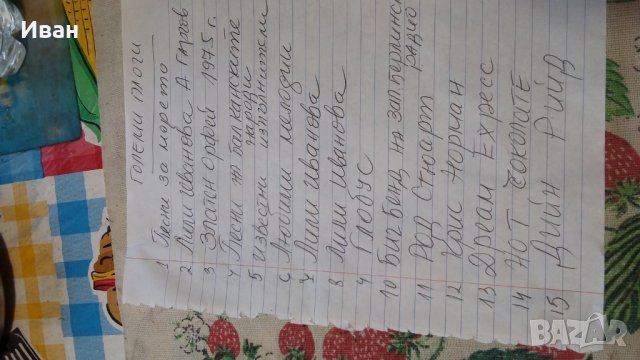 Иван
ГОЛЕМИ ПЛОЧИ
1 Песни за морето
2 Лили Иванова А Петров
3 Златен Орфей 1975 г.
4 Песни на балканските
народи
5 известни изпълнители
6 Любими мелодии
7 Лили Иванова
8 Лили Иванова
9 Глобус
10 Биг Бенд на зап. берлинско
радио
11 Род Стюарт
12 Крис Норман
13 Дреам Express
14 Hot Чоколате
15 Дийн Рийд
BAZAR
bg